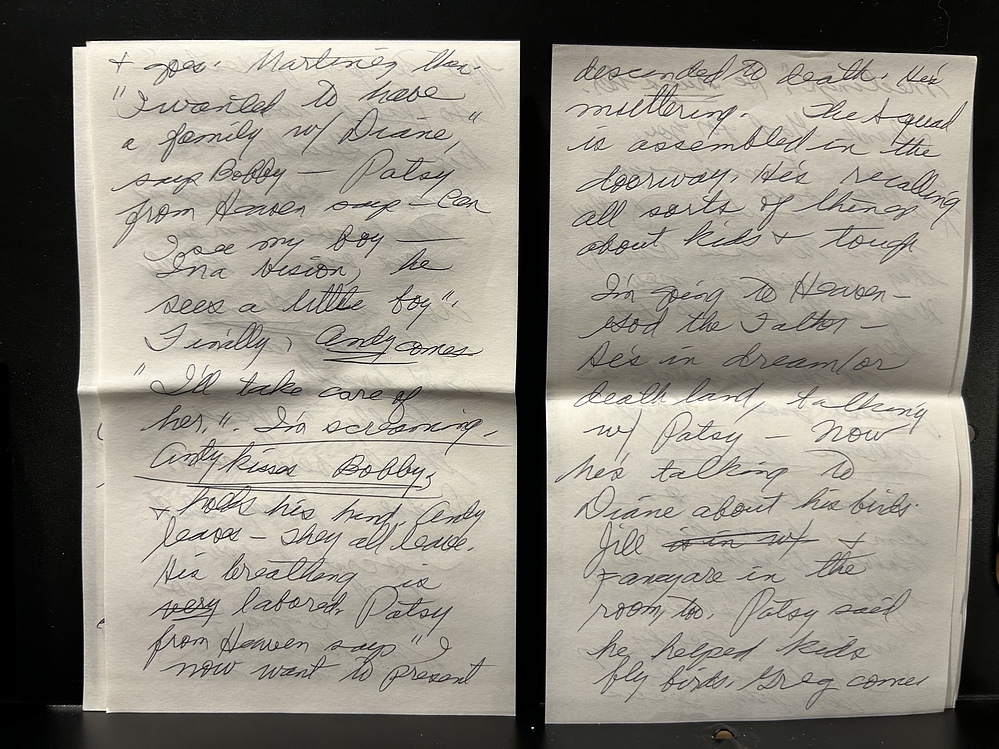 + goes. Martinez, then.
"I wanted to have
a family w/ Diane,"
says Bobby — Patsy
from Heaven says — Can
I see my boy —
In a vision, he
sees a little boy".
Finally, Andy comes
"I'll take care of
her,". I'm screaming,
Andy kisses Bobby,
+ holds his hand. Andy
leaves — They all leave.
His breathing is
very labored. Patsy
from Heaven says "I
now want to present
descended to death. He's
muttering. The squad
is assembled in the
doorway. He's recalling
all sorts of things
about kids + tough
I'm going to Heaven —
the Father —
He's in dream/or
death land, talking
w/ Patsy — Now
he's talking to
Diane about his birds.
Jill is in w/ +
are in the
room, too. Patsy said
he helped kids
fly birds. Greg comes